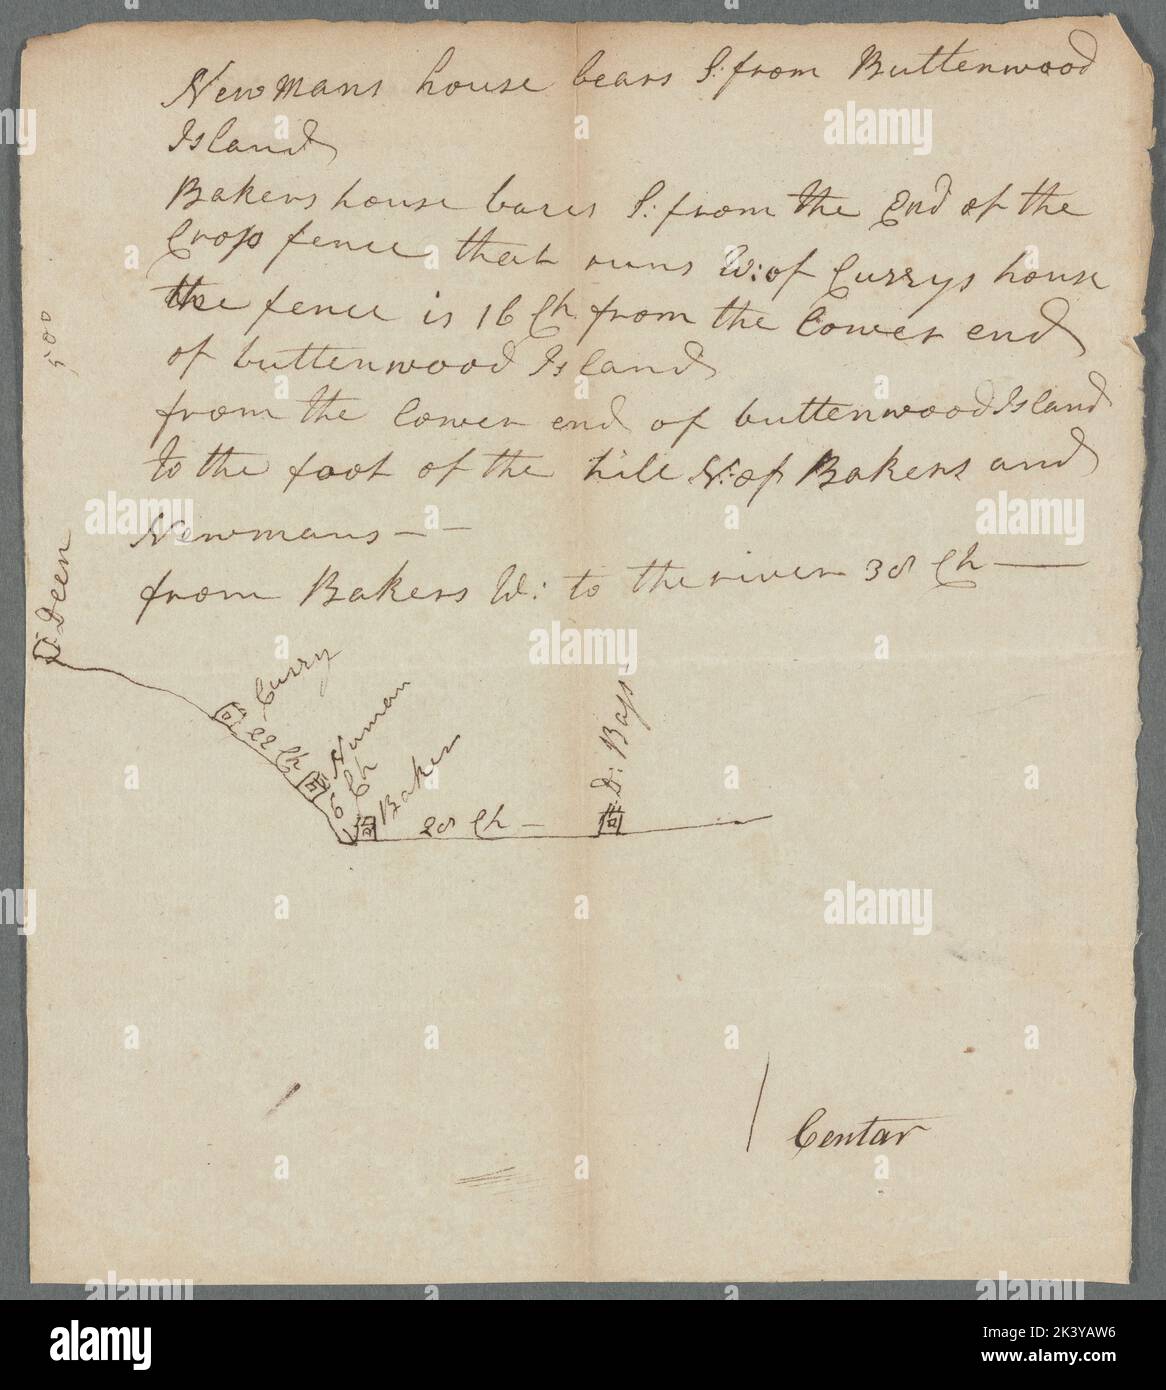 Newmans house bears S: from Buttenwood
Island
Bakers house bares S: from the End of the
Crop fence that runs W: of Currys house
the fence is 16 Ch from the lower end
of buttenwood Island
from the lower end of buttenwood Island
to the foot of the hill N: of Bakers and
Newmans — —
from Bakers W: to the river 38 Ch —
500
D: Deen
Curry
22 Ch
Numan
6 Ch
Baker
28 Ch —
D: Bass
Centar
alamy
Image ID: 2K3YAW6
www.alamy.com